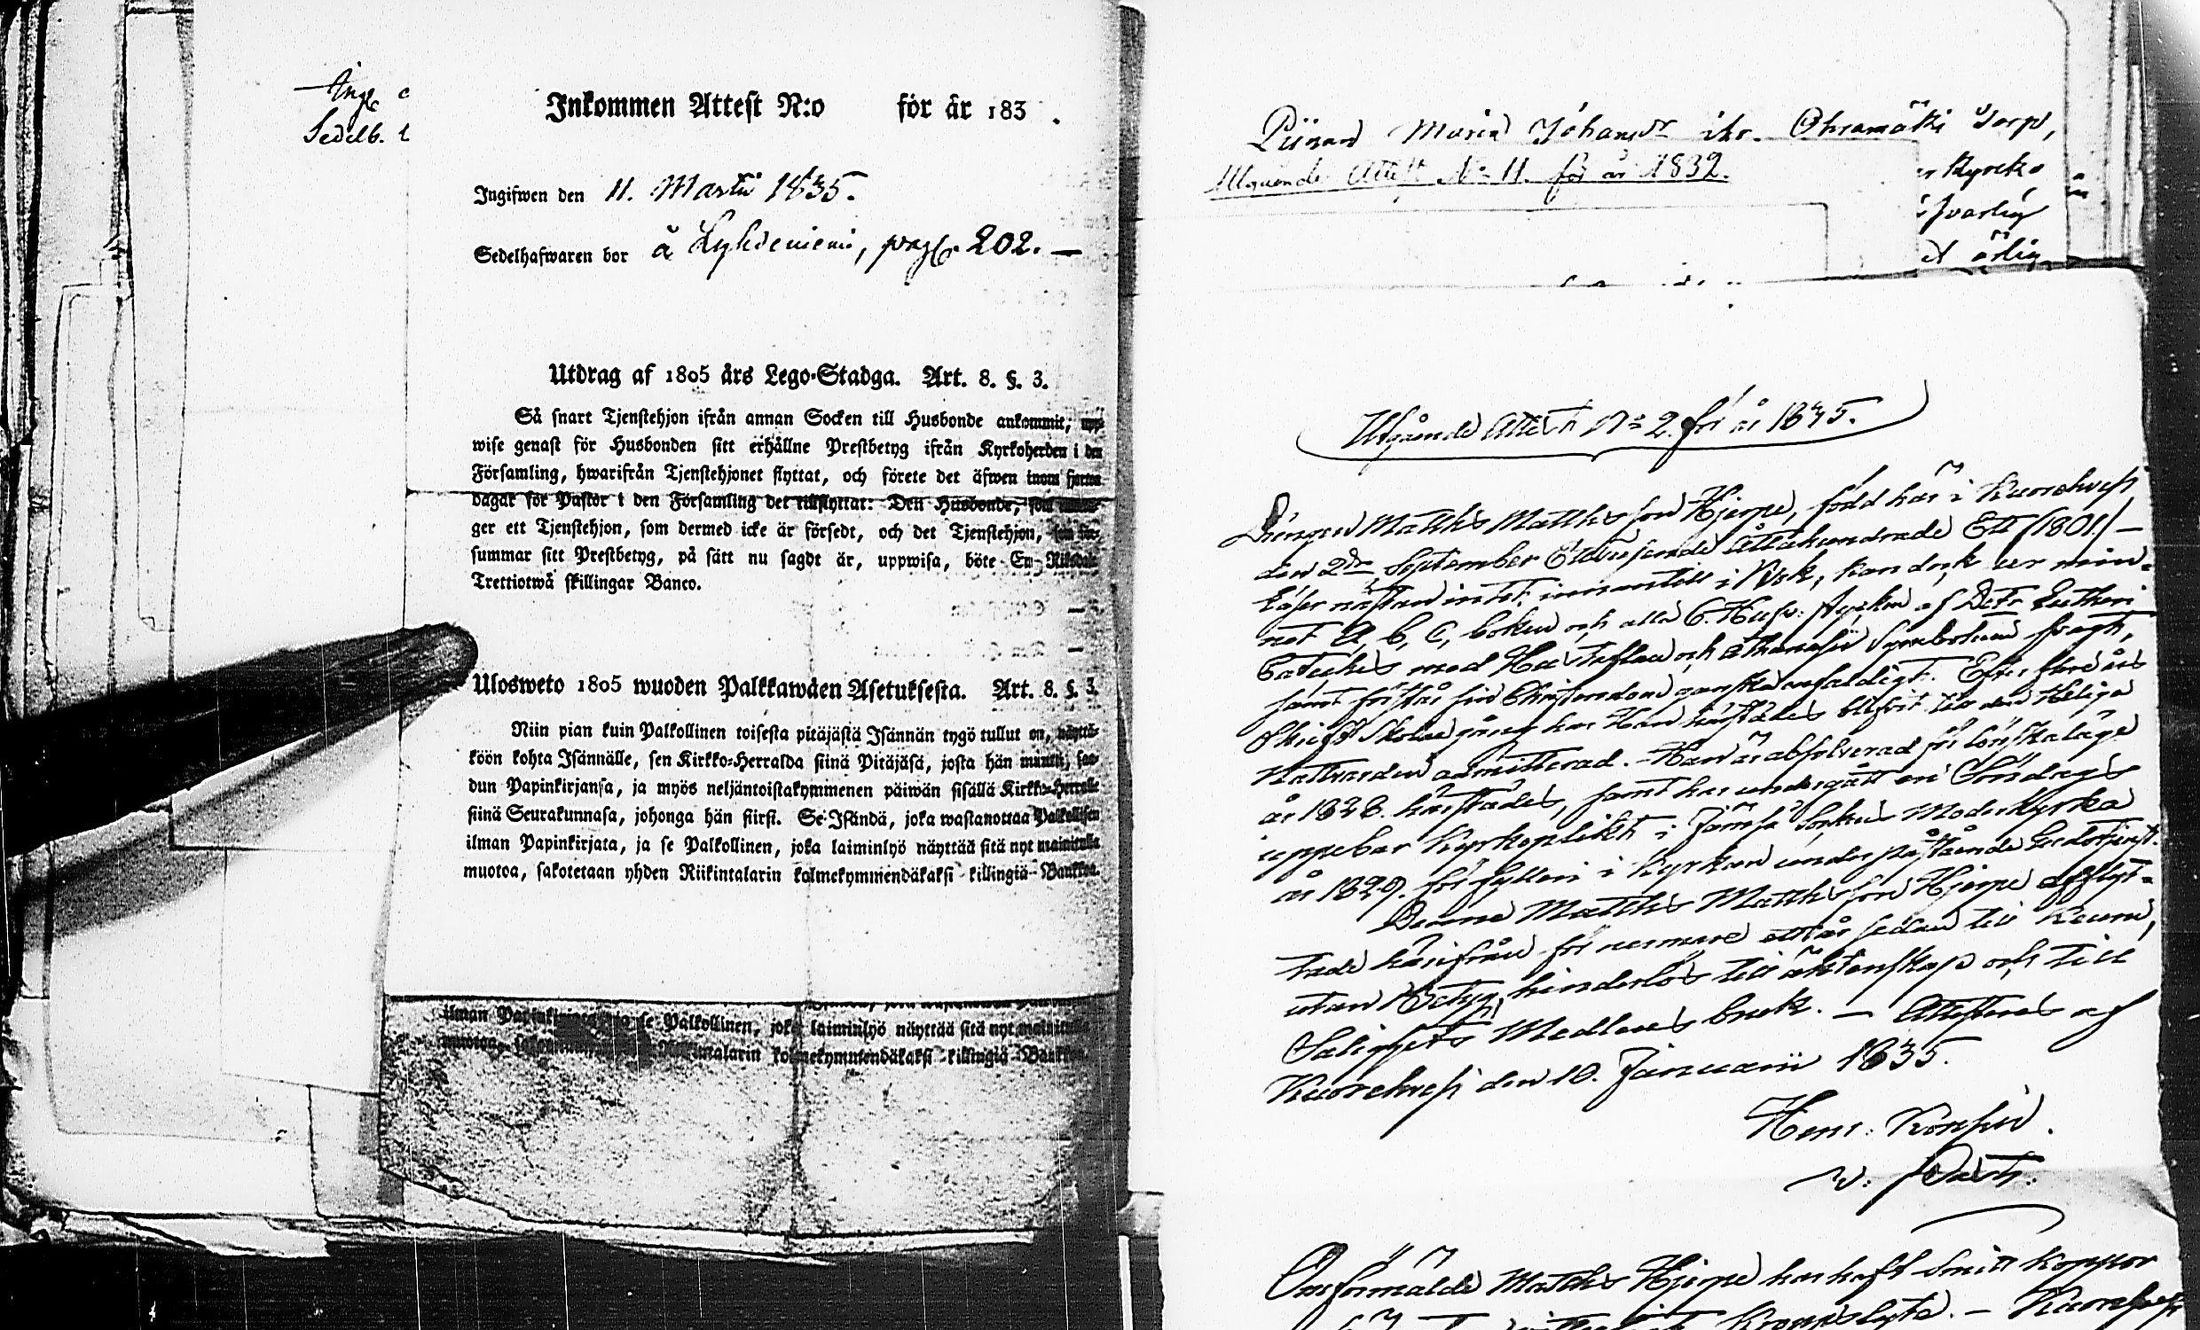 Sedelb.
Inkommen Attest N:o för år 183 .
Ingifwen den 11. Martii 1835.
Sedelhafwaren bor å Lyhdeniemi, pag. 202. —
Utdrag af 1805 års Lego-Stadga. Art. 8. §. 3.
Så snart Tjenstehjon ifrån annan Socken till Husbonde ankommit, upp-
wise genast för Husbonden sitt erhållne Prestbetyg ifrån Kyrkoherden i den
Församling, hwarifrån Tjenstehjonet flyttat, och förete det äfwen inom fjorton
dagar för Pastor i den Församling det tillflyttat: Den Husbonde, som
ger ett Tjenstehjon, som dermed icke är försedt, och det Tjenstehjon, som för-
summar sitt Prestbetyg, på sätt nu sagdt är, uppwisa, böte En Riksdal.
Trettiotwå skillingar Banco.
Ulosweto 1805 wuoden Palkkawäen Asetuksesta. Art. 8. §. 3.
Niin pian kuin Palkollinen toisesta pitäjästä Isännän tygö tullut on, näyttä-
köön kohta Isännälle, sen Kirkko-Herralda siinä Pitäjäsä, josta hän muutti, saa-
dun Papinkirjansa, ja myös neljäntoistakymmenen päiwän sisällä Kirkko-Herralle
siinä Seurakunnasa, johonga hän siirsi. Se Isändä, joka wastanottaa Palkollisen
ilman Papinkirjata, ja se Palkollinen, joka laiminlyö näyttää sitä nyt mainitulla
muotoa, sakotetaan yhden Riikintalarin kolmekymmendäkaksi killingiä Bankkoa.
ilman Papinkirjata ja se Palkollinen, joka laiminlyö näyttää sitä nyt mainitulla
muotoa, Riikintalarin kolmekymmendäkaksi killingiä Bankkoa.
Pigan Maria Johansdr Torp,
Utgående Attest No 11. för år 1832.
Kyrko
svarlig
ärlig
Utgående Attest No 2. för år 1835.
Drängen Matths Matthsson Hjerpe, född här i Kuorehvesi
den 2dn September Ettusende Åttahundrade Ett (1801) —
Läser nästan intet innantill i Bok, kan dock ur min-
net A, B, C, boken och alla 6. Huf: stycken af Dctr. Lutheri
Cateches med Hus Taflan och Athanasii Symbolum
samt förstår sin Christendom ganska enfaldigt. Efter års
Skrift Skole gång har Han härstädes blifvit till den Heliga
Nattvarden admitterad. - Han är absolverad för lönskaläge
år 1826. härstädes, samt har undergått en Söndags
uppebar Kyrkoplikt i Jämsä Sockens Moderkyrka
år 1829. för fylleri i Kyrkan under påstående Gudstjenst.
Denne Matths Matthsson Hjerpe afflyt-
tade härifrån för närmare ett år sedan till
utan Betyg, hinderlös till äktenskap och till
Salighets Medlens bruk. — Attesteras af
Kuorehvesi den 10. Januarii 1835.
Henr: Konsin.
v: Past:
Omförmälde Matths Hjerpe har haft Smitt Koppor